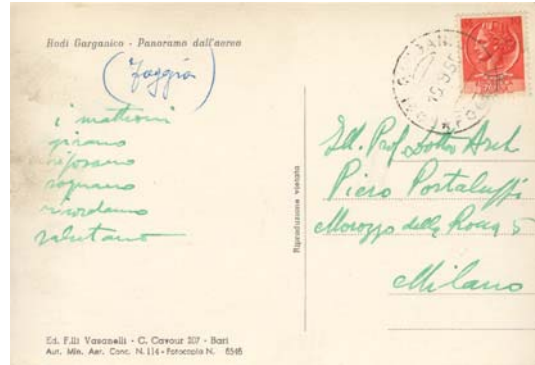 Rodi Garganico - Panorama dall'aereo
(Foggia)
i mattioni
girano
riposano
sognano
ricordano
salutano
Ill. Prof. Dottor Arch
Piero Portaluppi
Morozzo della Rocca 5
Milano
Riproduzione vietata
Ed. F.lli Vasanelli - C. Cavour 207 - Bari
Aut. Min. Aer. Conc. N. 114 - Fotocopia N. 8548